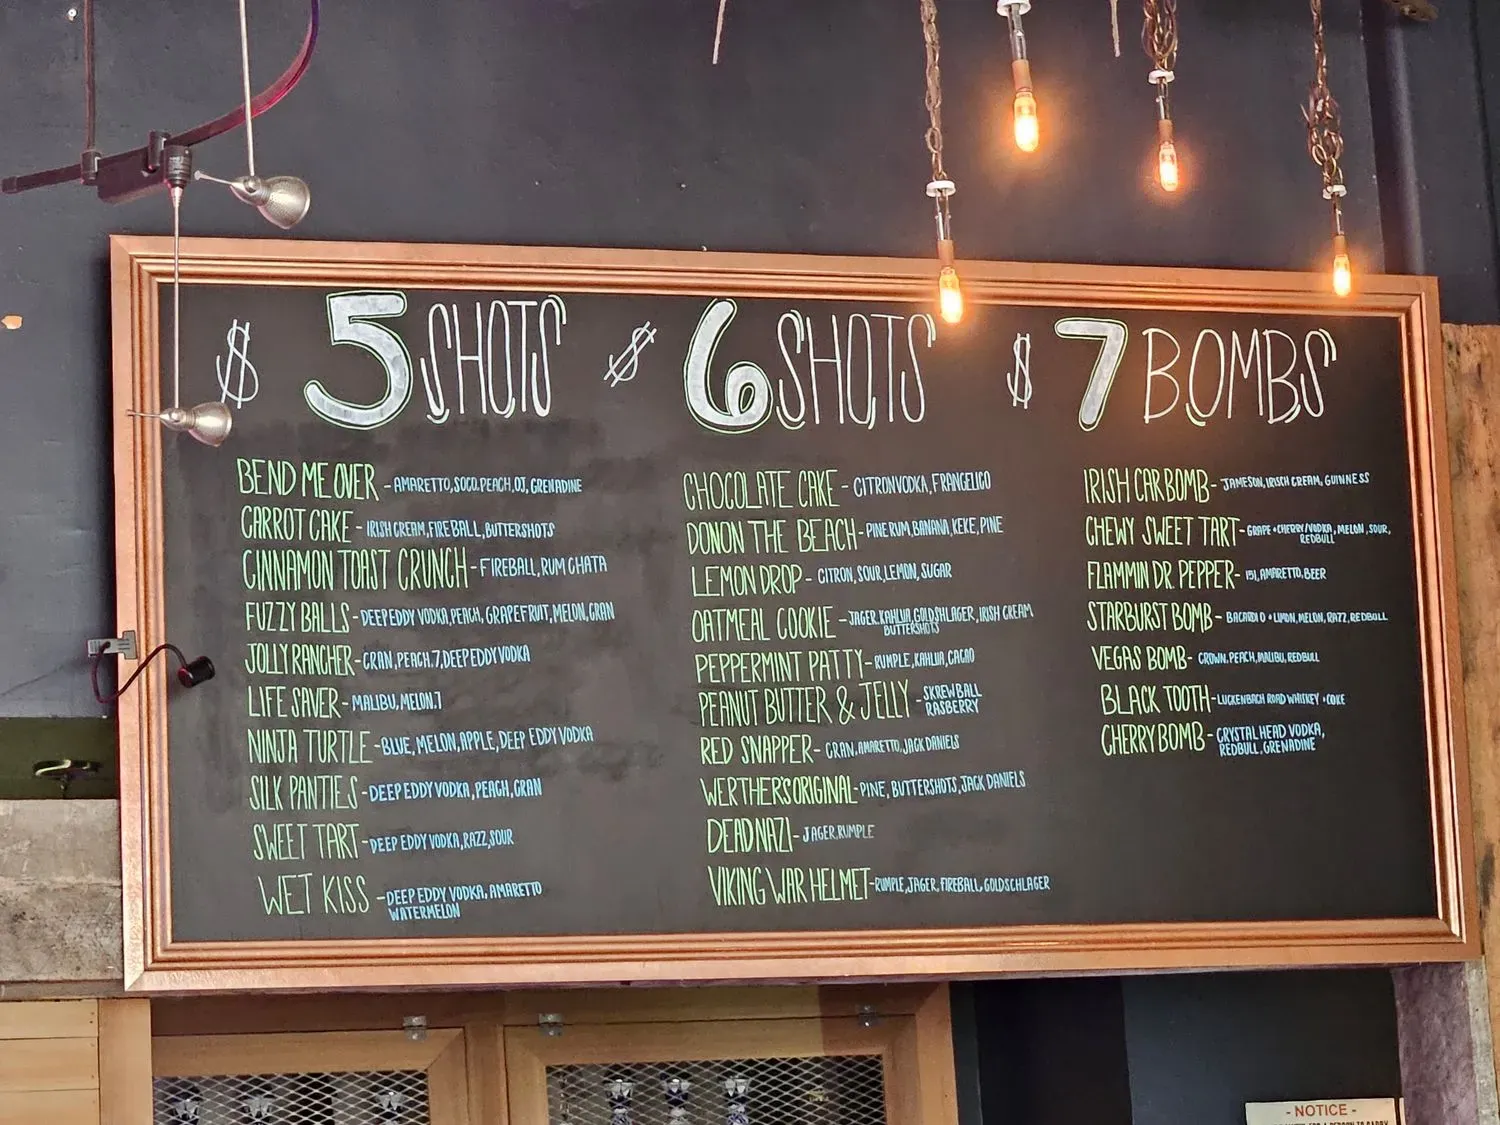 $5 SHOTS
BEND ME OVER - AMARETTO, SOCO, PEACH, OJ, GRENADINE
CARROT CAKE - IRISH CREAM, FIREBALL, BUTTERSHOTS
CINNAMON TOAST CRUNCH - FIREBALL, RUM CHATA
FUZZY BALLS - DEEP EDDY VODKA, PEACH, GRAPEFRUIT, MELON, CRAN
JOLLY RANCHER - CRAN, PEACH, 7, DEEP EDDY VODKA
LIFE SAVER - MALIBU, MELON, 7
NINJA TURTLE - BLUE, MELON, APPLE, DEEP EDDY VODKA
SILK PANTIES - DEEP EDDY VODKA, PEACH, CRAN
SWEET TART - DEEP EDDY VODKA, RAZZ, SOUR
WET KISS - DEEP EDDY VODKA, AMARETTO
WATERMELON
$6 SHOTS
CHOCOLATE CAKE - CITRON VODKA, FRANGELICO
DONON THE BEACH - PINE RUM, BANANA, KEKE, PINE
LEMON DROP - CITRON, SOUR, LEMON, SUGAR
OATMEAL COOKIE - JAGER, KAHLUA, GOLDSHLAGER, IRISH CREAM
BUTTERSHOTS
PEPPERMINT PATTY - RUMPLE, KAHLUA, CACAO
PEANUT BUTTER & JELLY - SKREWBALL
RASBERRY
RED SNAPPER - CRAN, AMARETTO, JACK DANIELS
WERTHER'S ORIGINAL - PINE, BUTTERSHOTS, JACK DANIELS
DEAD NAZI - JAGER, RUMPLE
VIKING WAR HELMET - RUMPLE, JAGER, FIREBALL, GOLDSCHLAGER
$7 BOMBS
IRISH CAR BOMB - JAMESON, IRISCH CREAM, GUINNESS
CHEWY SWEET TART - GRAPE + CHERRY/VODKA, MELON, SOUR,
REDBULL
FLAMMIN DR. PEPPER - 151, AMARETTO, BEER
STARBURST BOMB - BACARDI O + LIMON, MELON, RAZZ, REDBULL
VEGAS BOMB - CROWN, PEACH, MALIBU, REDBULL
BLACK TOOTH - LUCKENBACH ROAD WHISKEY + COKE
CHERRY BOMB - CRYSTAL HEAD VODKA,
REDBULL, GRENADINE
- NOTICE -